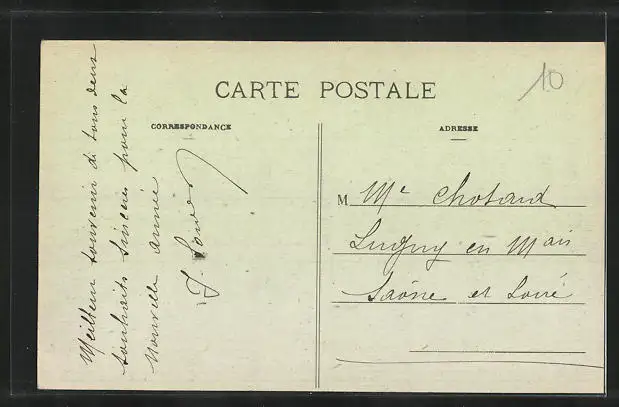 10
CARTE POSTALE
CORRESPONDANCE
ADRESSE
Meilleur souvenir di tous deux
souhaits sincères pour la
Nouvelle année
J.
M Me Chotard
Lugny en Mâ
Saône et Loire